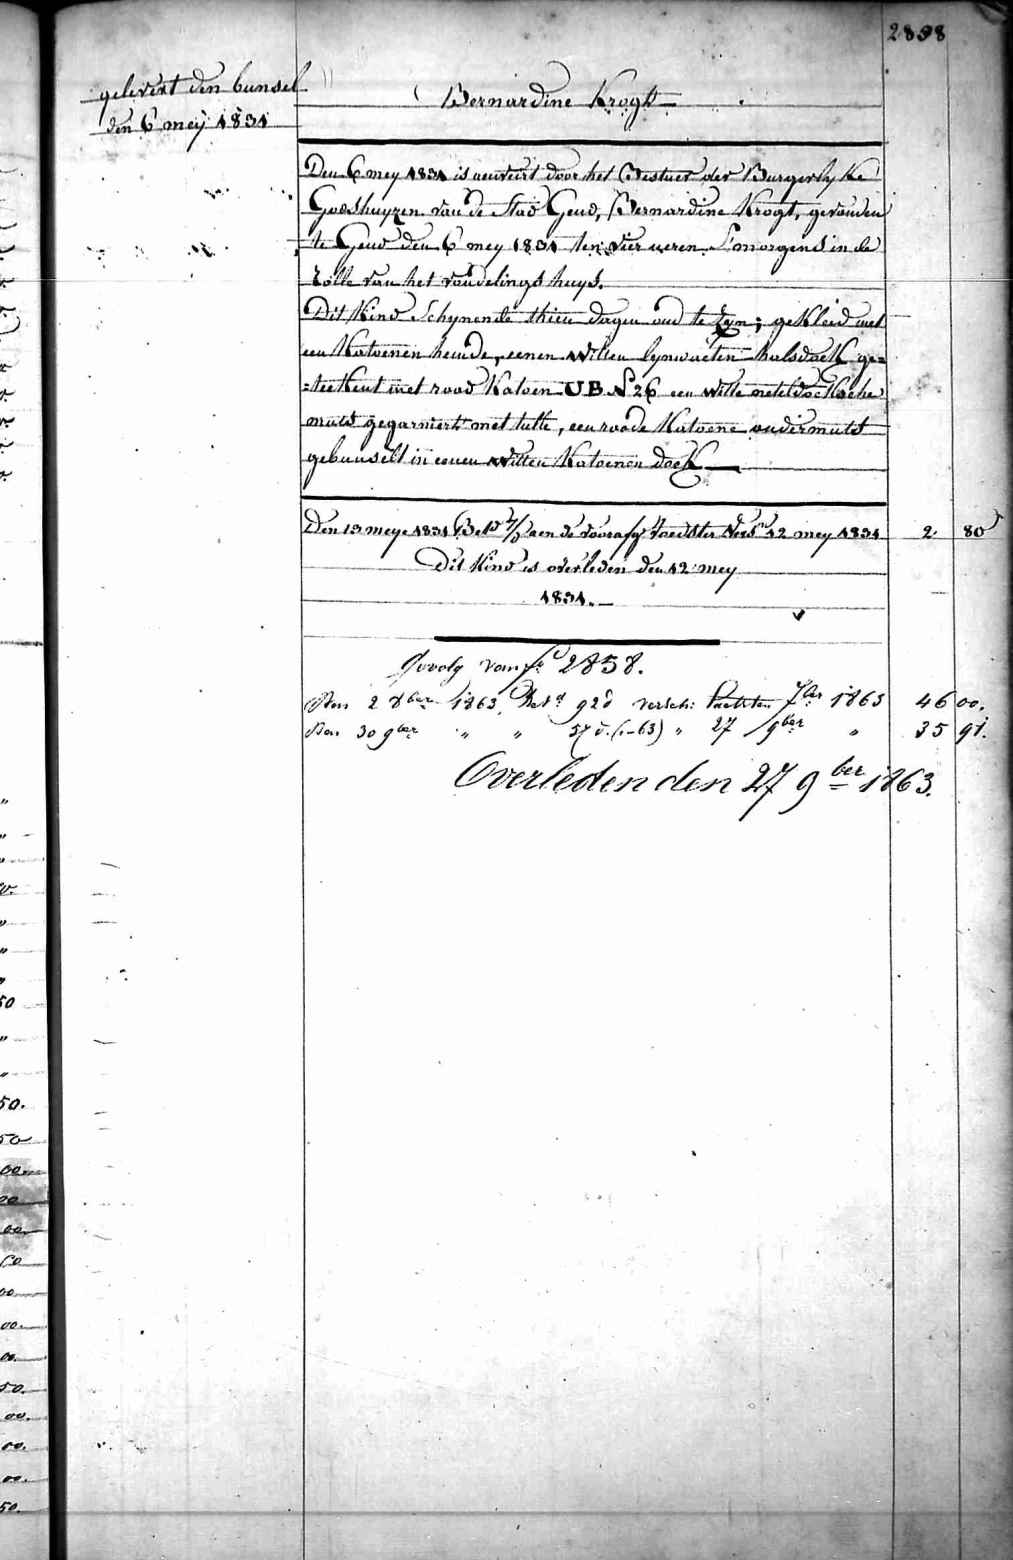 2898
gelevert den bunsel
den 6 meij 1831
Bernardine Krogt
Den 6 mey 1831 is aenveirt door het Bestuer der Burgerlyke
Godshuyzen van de Stad Gend, Bernardine Krogt, gevonden
te Gend den 6 mey 1831 ten vier ueren S'morgens in de
rolle van het vondelings huys.
Dit Kind Schynende thien dagen oud te Zyn; gekleid met
een Katoenen hemde, eenen witten lynwaeten halsdoek ge=
=teekent met rood Katoen UB N 26 een witte neteldoeksche
muts gegarniert met tulle, een roode Katoene ondermuts
gebunselt in eenen witten Katoenen doek
Den 13 meye 1831 Bet. aen de voorafg. Voedster Vers. 12 mey 1831 2. 80
Dit Kind is overleden den 12 mey
1831.
Gevolg van fo 2858.
Den 2 8ber 1863. Bet.d 92d versch: 7ber 1863 46 00.
Den 30 9ber " " 57 d. (1-63) " 27 9ber " 35 91.
Overleden den 27 9ber 1863.
"
"
"
"
"
"
50
"
"
50.
50
00
00
00
00
00
00
50.
00.
00.
00.
50.